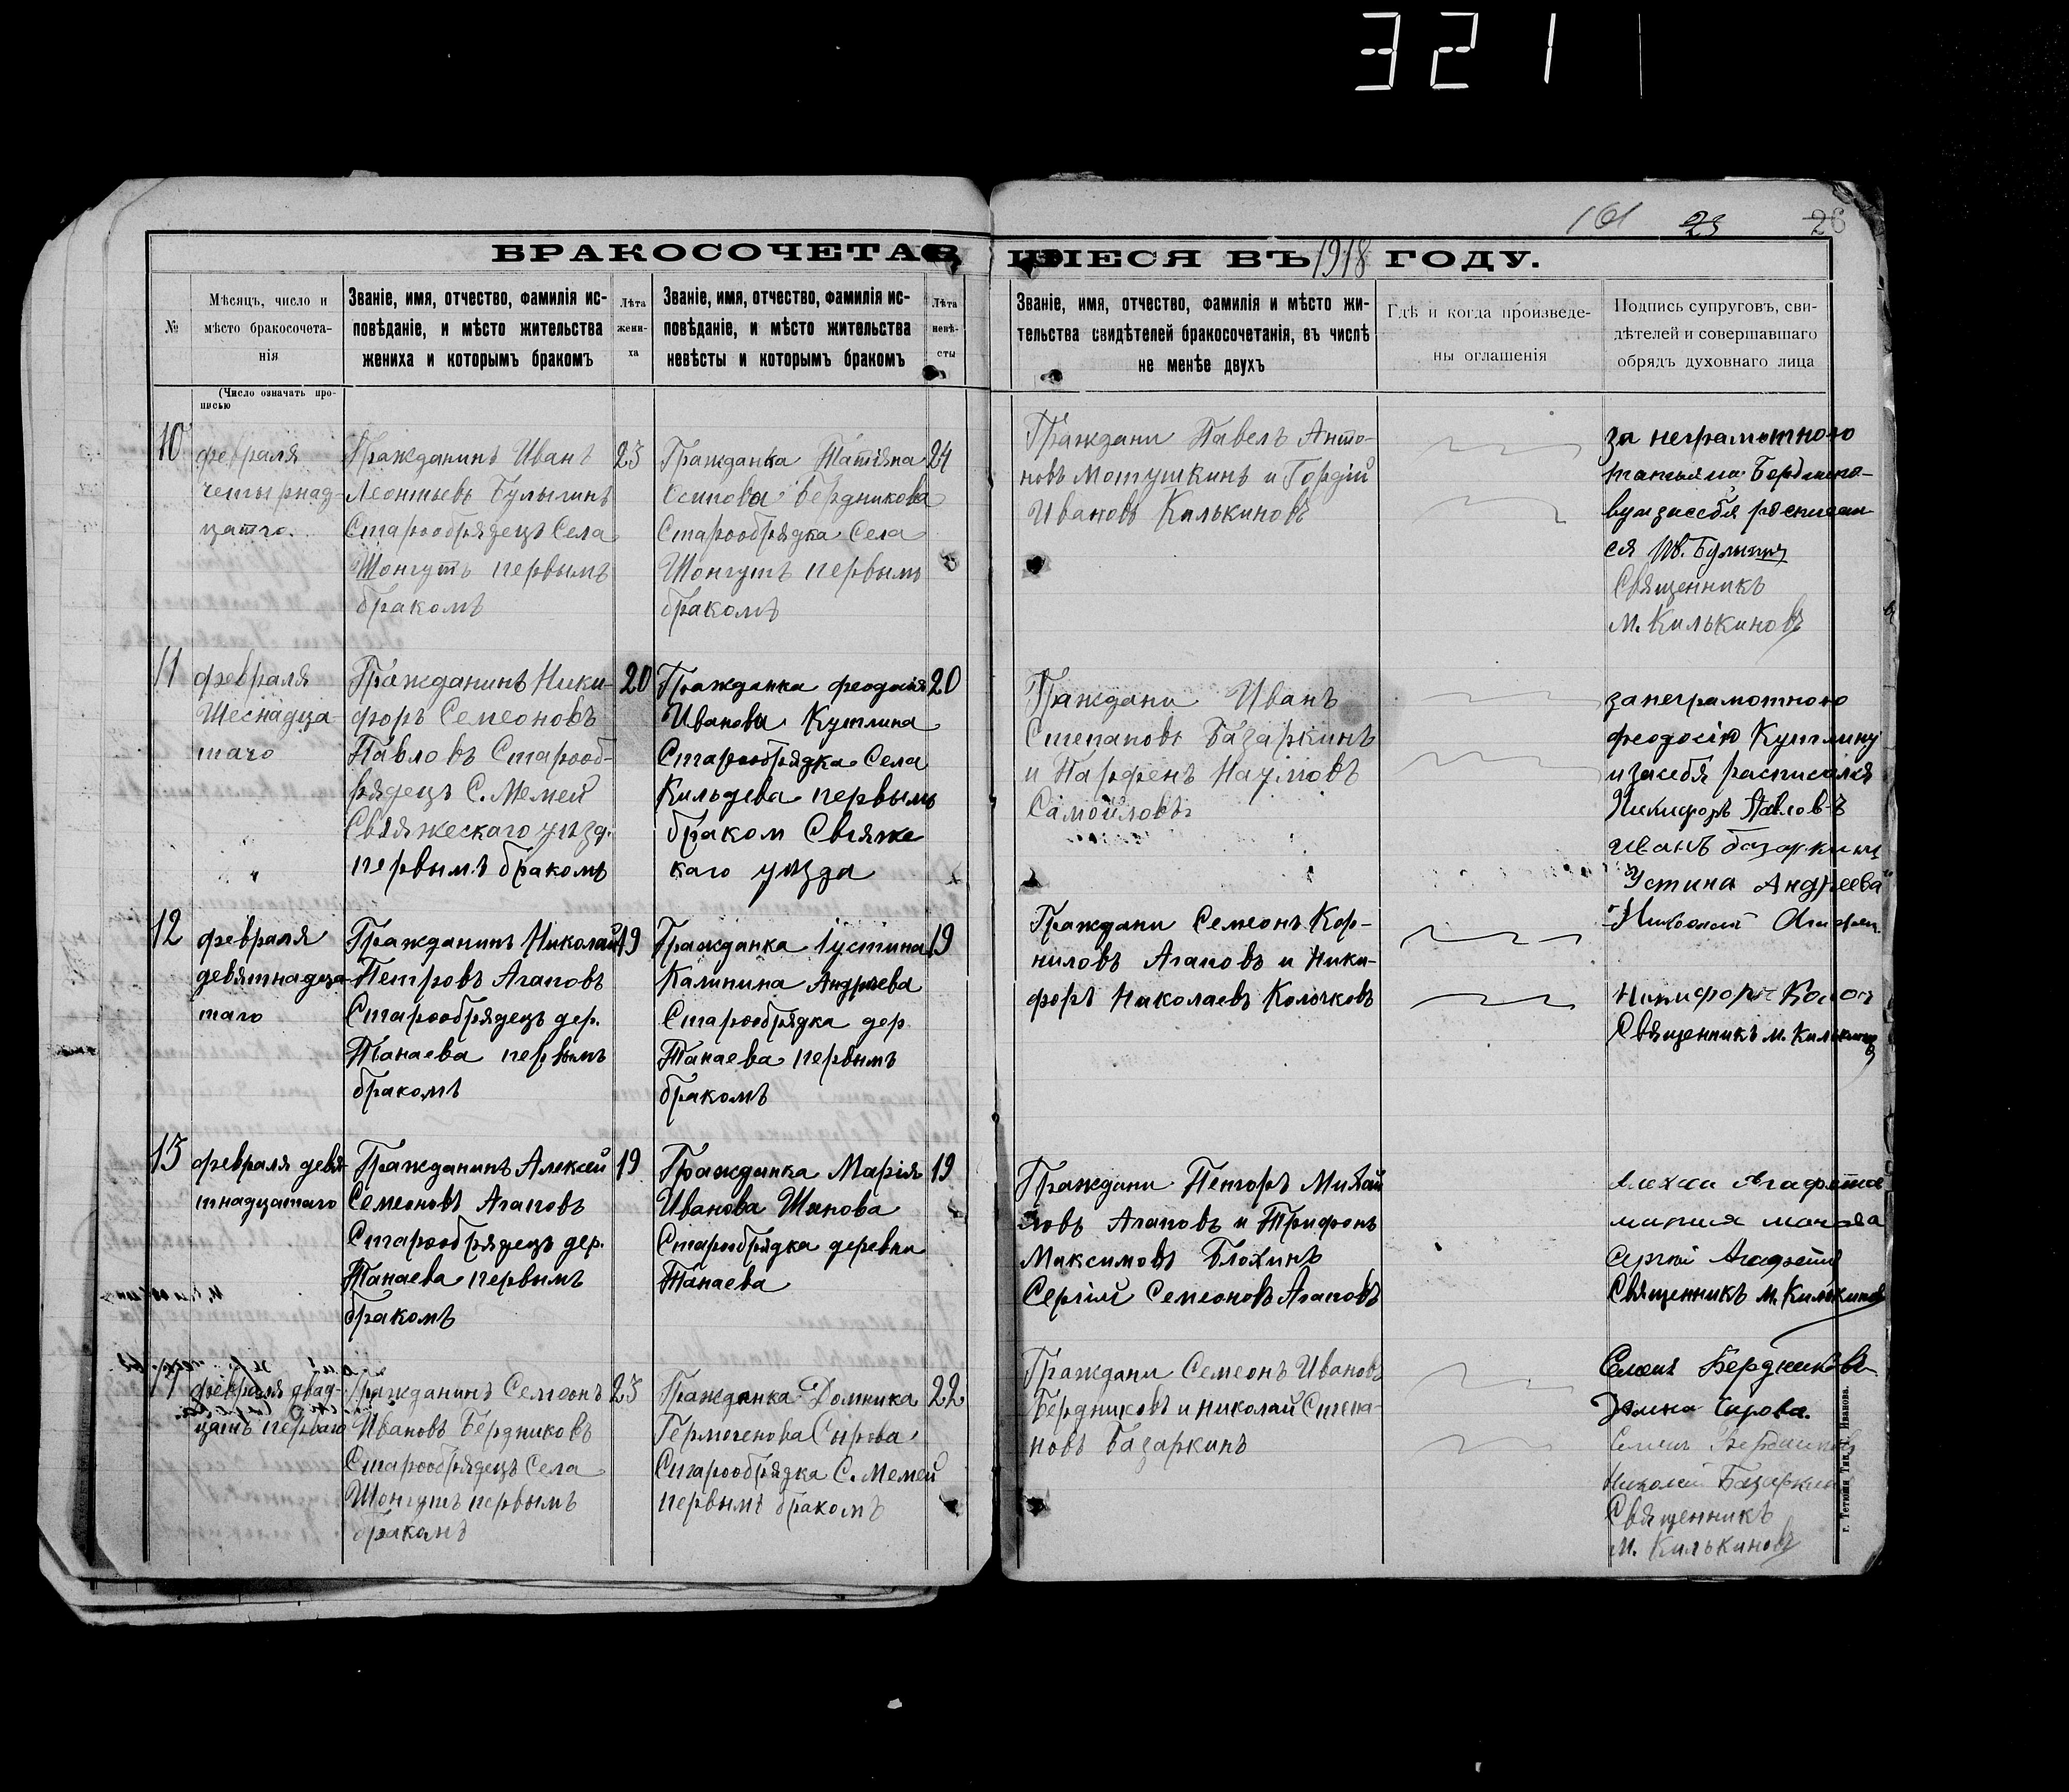 3211
161 23 26
БРАКОСОЧЕТАВШІЕСЯ ВЪ 1918 ГОДУ.
№
Мѣсяцъ, число и
мѣсто бракосочета-
нія
Званіе, имя, отчество, фамилія ис-
повѣданіе, и мѣсто жительства
жениха и которымъ бракомъ
Лѣта
жени-
ха
Званіе, имя, отчество, фамилія ис-
повѣданіе, и мѣсто жительства
невѣсты и которымъ бракомъ
Лѣта
невѣ-
сты
Званіе, имя, отчество, фамилія и мѣсто жи-
тельства свидѣтелей бракосочетанія, въ числѣ
не менѣе двухъ
Гдѣ и когда произведе-
ны оглашенія
Подпись супруговъ, сви-
дѣтелей и совершавшаго
обрядъ духовнаго лица
(Число означать про-
писью
10
февраля
четырнад-
цатго.
Гражданинъ Иванъ
Леонтьевъ Булыгинъ
Старообрядецъ Села
Шонгутъ первымъ
бракомъ
23
Гражданка Татіяна
Осипова Бердникова
Старообрядка Села
Шонгутъ первымъ
бракомъ
24
Граждани Павелъ Анто-
новъ Мотушкинъ и Гордій
Ивановъ Килькиновъ
за неграмотного
Татьяна Бердника-
ву и засебя
ся Ив. Булыгин
Священникъ
М. Килькиновъ
11
февраля
Шеснадца-
таго
Гражданинъ Ники-
форъ Семеоновъ
Павловъ Старооб-
рядецъ С. Мемей
Свіяжескаго уѣзд.
первымъ бракомъ
20
Гражданка Феодосия
Иванова Кутлина
Старообрядка Села
Кильдева первымъ
браком Свіяже
каго уѣзда
20
Граждани Иванъ
Степановъ Базаркинъ
и Парфенъ Наумовъ
Самойловъ
за неграмотного
феодосію Кутлину
и засебя расписался
Никифоръ Павловъ
Иванъ базаркинъ
12
февраля
девятнадца-
таго
Гражданинъ Николай
Петровъ Агаповъ
Старообрядецъ дер.
Танаева первымъ
бракомъ
19
Гражданка Іустина
Калинина Андреева
Старообрядка дер.
Танаева первымъ
бракомъ
19
Граждани Семеонъ Кор-
ниловъ Агаповъ и Ники-
форъ Николаевъ Колочковъ
Устина Андреева
Николай
Никифоръ
Священникъ М. Килькиновъ
13
февраля девя-
тнадцатаго
Гражданинъ Алексѣй
Семеоновъ Агаповъ
Старообрядецъ дер.
Танаева первымъ
бракомъ
19
Гражданка Марія
Иванова Шанова
Старообрядка деревни
Танаева
19
Граждани Петоръ Михай
ловъ Агаповъ и Трифонъ
Максимовъ Блохинъ
Сергій Семеоновъ Агаповъ
мария
Сергей
Священникъ М. Килькиновъ
февраля двад-
цать перваго
Гражданинъ Семеонъ
Ивановъ Бердниковъ
Старообрядецъ Села
Шонгутъ первымъ
бракомъ
23
Гражданка Домника
Гермогенова Сырова
Старообрядка С. Мемей
первымъ бракомъ
22
Граждани Семеонъ Ивановъ
Бердниковъ и Николай Степа-
новъ Базаркинъ
Семен Бердниковъ
Сырова.
Семен Бердников
Николай Базаркин
Священникъ
М. Килькиновъ